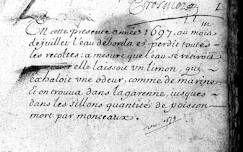 En cette presente année 1697, au mois
de juillet l'eau deborda et perdit toutes
les recoltes: a mesure que l'eau se retiroit
elle laissoit un limon, qui
exhaloit une odeur, comme de marine
l'on trouua dans la garenne, jusques
dans les sillons quantité de poisson
mort par monceaux.